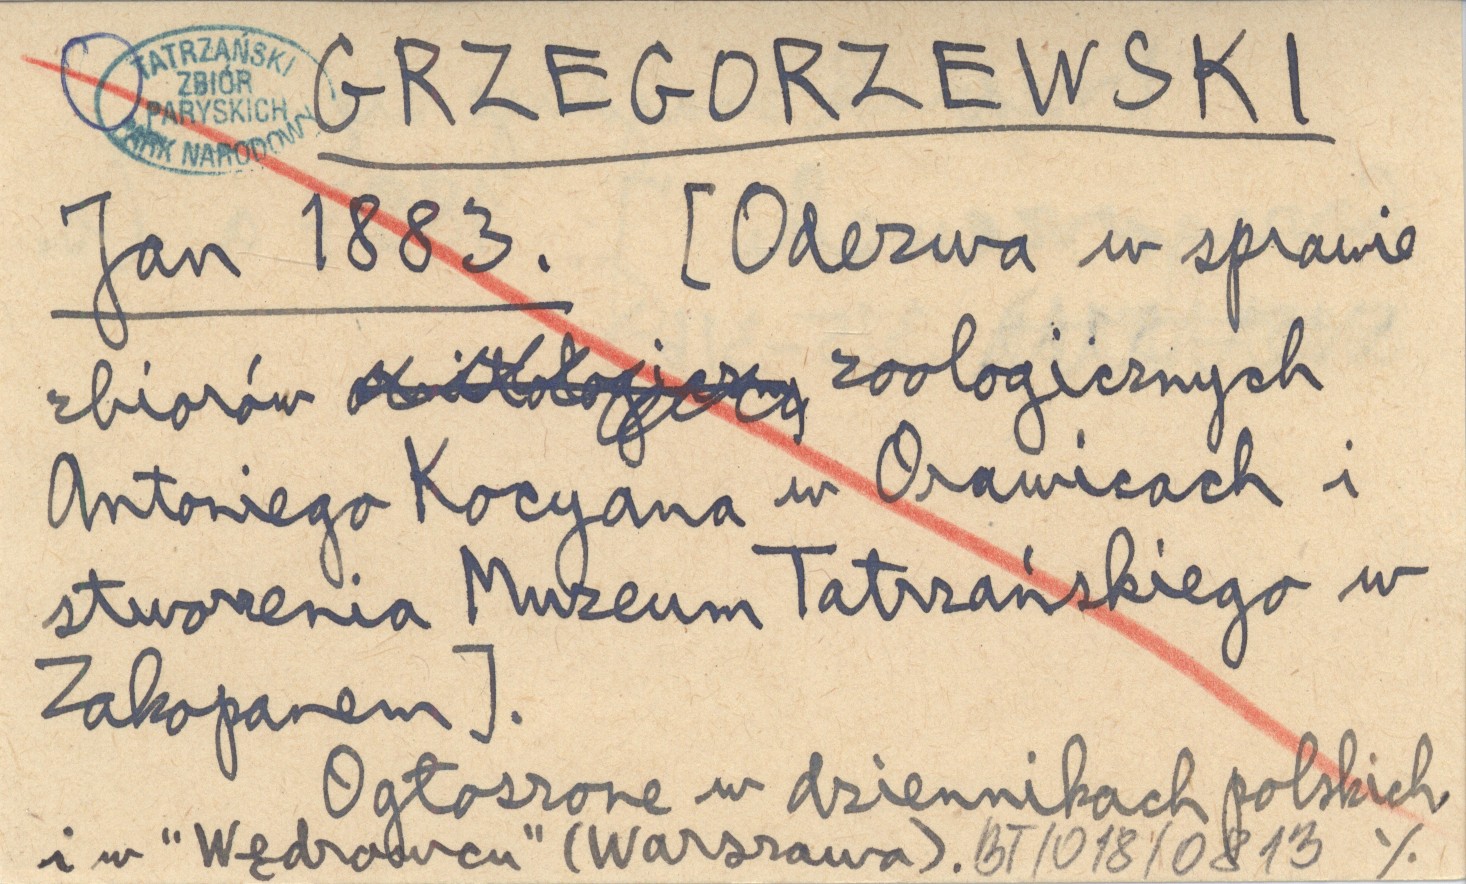 TATRZAŃSKI
ZBIÓR
PARYSKICH
PARK NARODOWY
GRZEGORZEWSKI
Jan 1883. [Odezwa w sprawie
zbiorów zoologicznych
Antoniego Kocyana w Orawicach i
stworzenia Muzeum Tatrzańskiego w
Zakopanem].
Ogłoszone w dziennikach polskich
i w "Wędrowcu" (Warszawa). BT/018/0813 ·/.